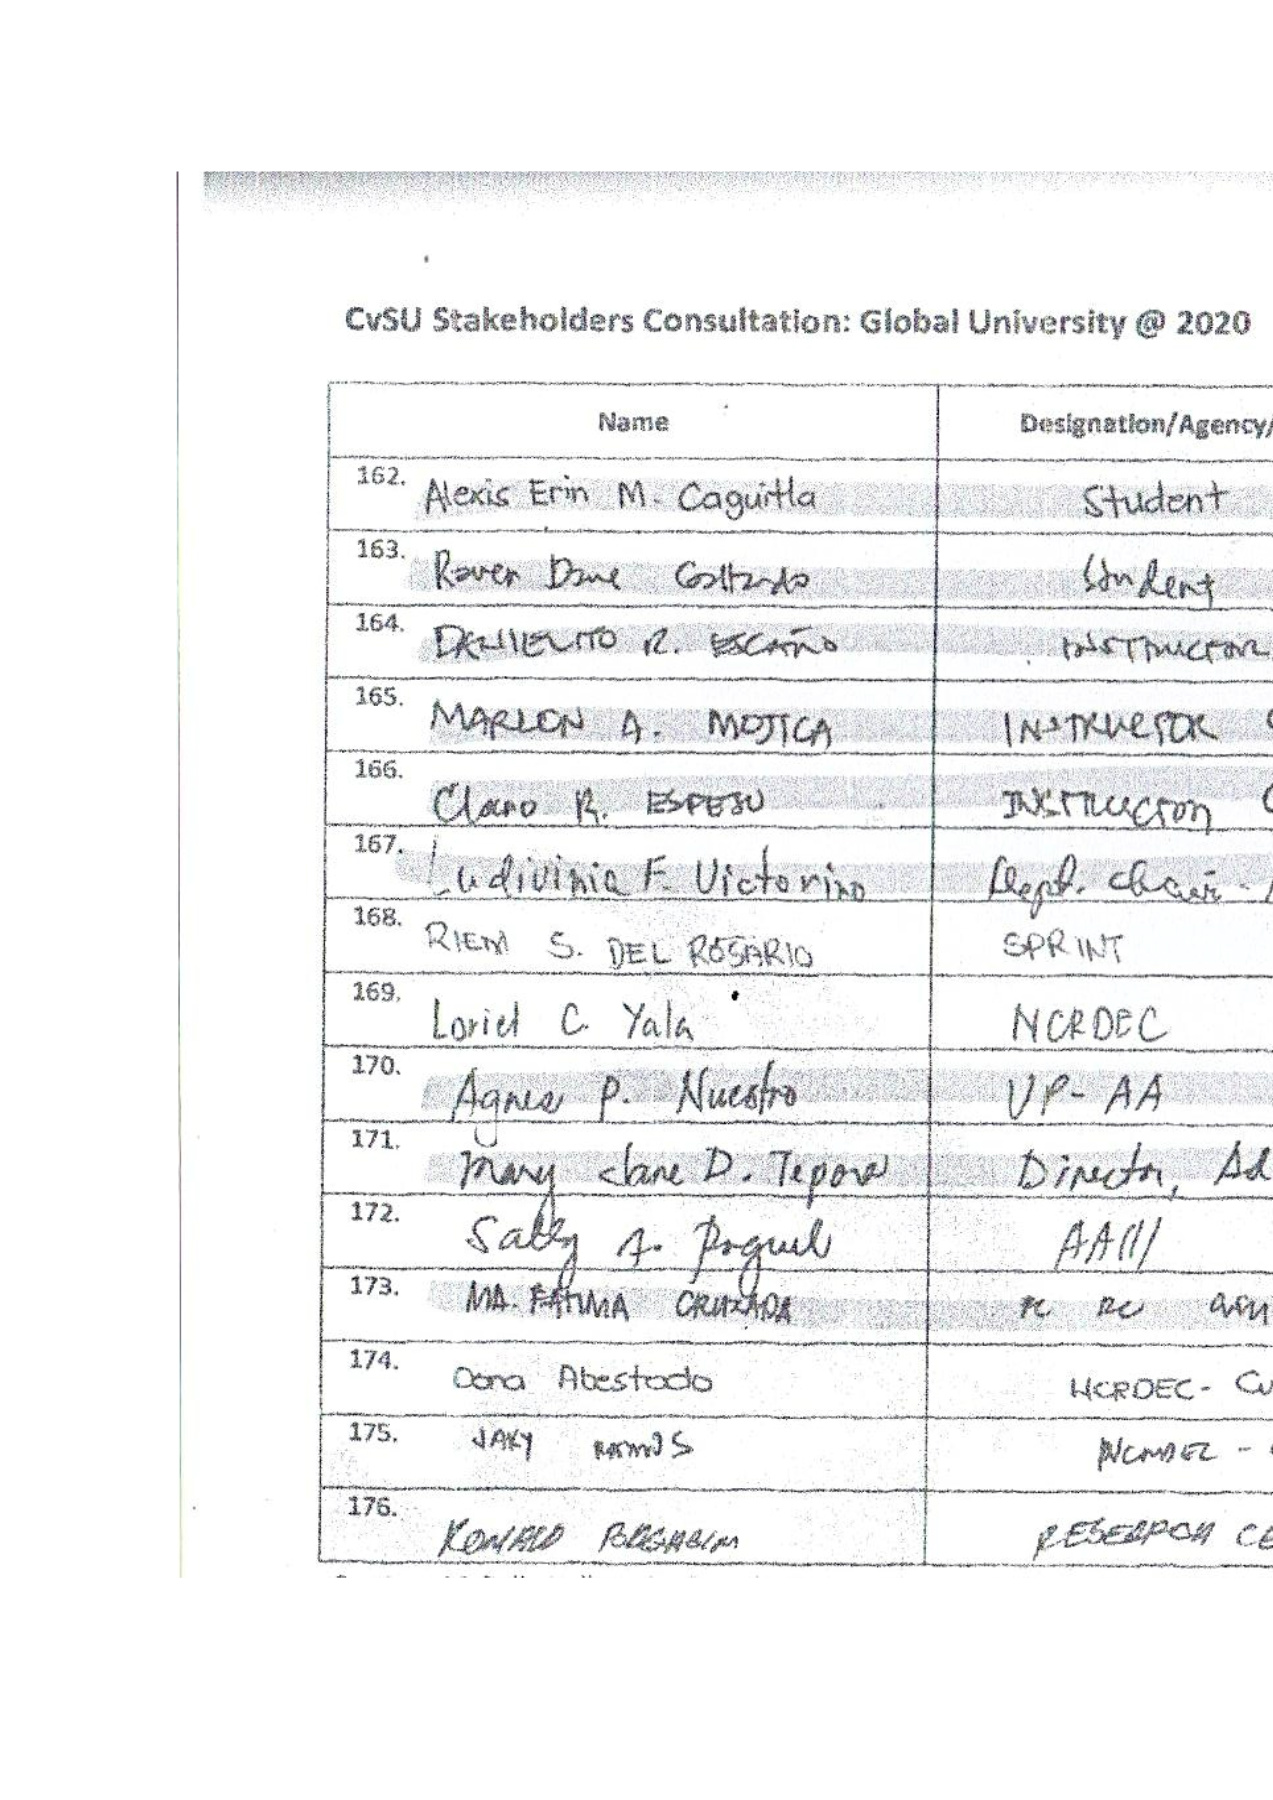 CvSU Stakeholders Consultation: Global University @ 2020
Name Designation/Agency/
162. Alexis Erin M. Caguitla Student
163. Raven Dane Student
164. DANIELITO R. ESCAÑO INSTRUCTOR
165. MARLON A. MOJICA INSTRUCTOR
166. Claro R. ESPESO INSTRUCTOR
167. Ludivinia F. Victorino Dept. Chair -
168. RIEM S. DEL ROSARIO SPRINT
169. Loriel C. Yala NCRDEC
170. Agnes P. Nuestro VP- AA
171. Mary Jane D. Tepora Director, Ad
172. Sally A. AAIII
173. MA. FATIMA CRUZADA
174. Dona Abestado NCRDEC- Cv
175. JAKY RAMOS NCRDEC -
176. RONALD RESEARCH CE